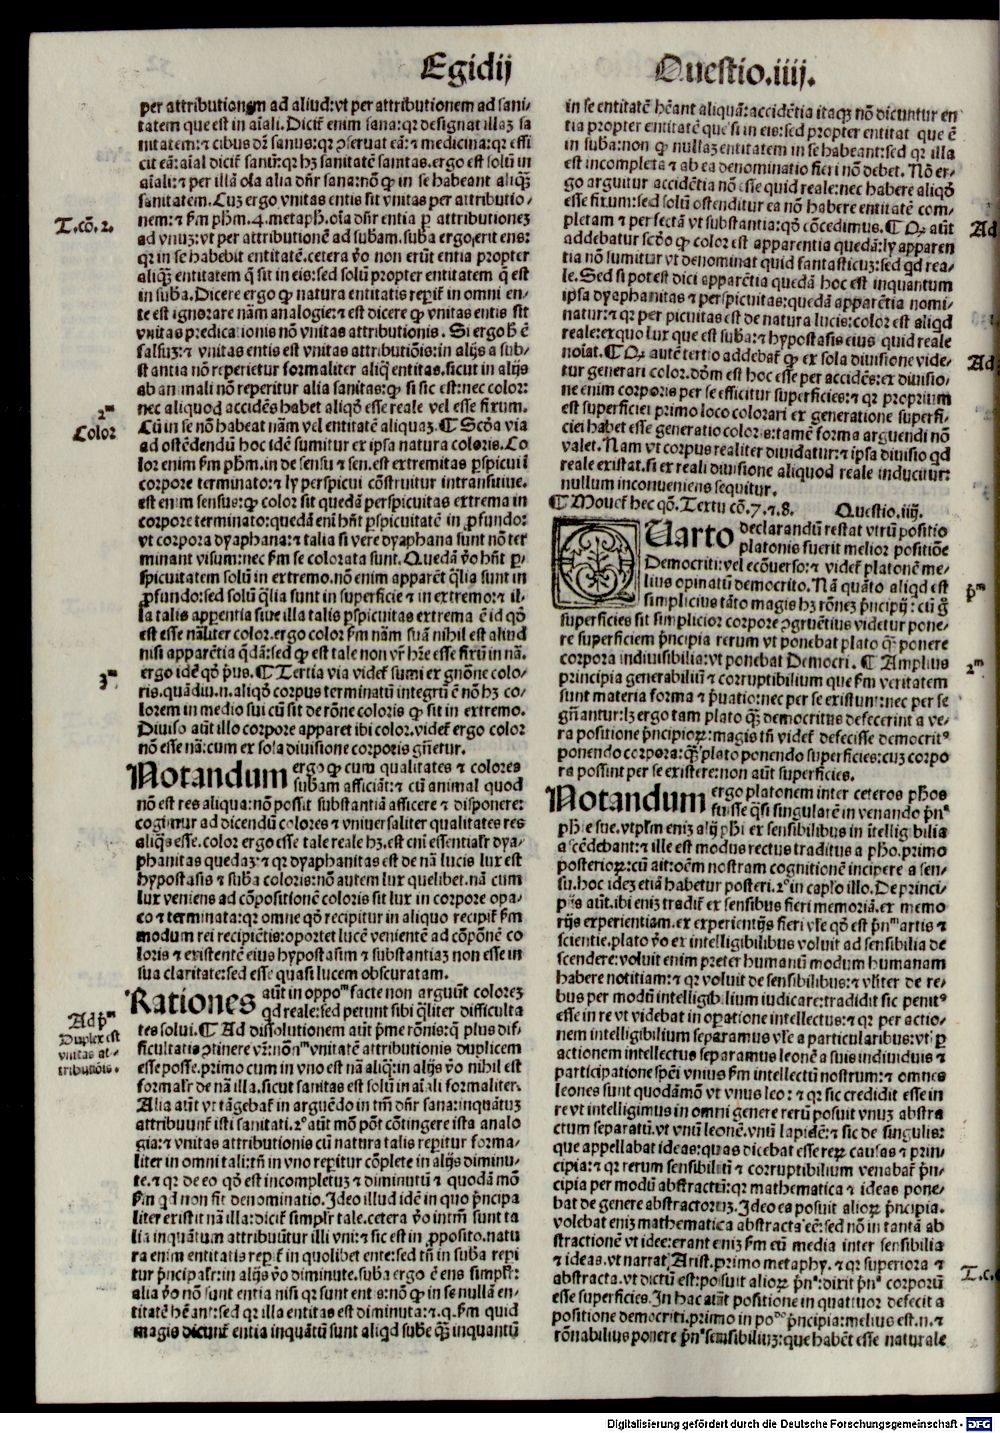 Egidij
Questio.iiij.
per attributionem ad aliud:vt per attributionem ad sani/
tatem que est in aīali.Dicit̄ enim sana:qꝛ designat illaꝫ sa
nitatem:⁊ cibus dꝛ̄ sanus:qꝛ ꝯseruat eā:⁊ medicina:qꝛ effi
cit eā:aīal dicit̄ sanū:qꝛ hꝫ sanitatē sanitas.ergo est solū in
aīali:⁊ per illā oīa alia dn̄r sana:nō ꝙ in se habeant aliqꝫ
sanitatem.Cuꝫ ergo vnitas entis sit vnitas per attributio/
nem:⁊ fm̄ phm̄.4.metaph.oīa dn̄r entia ꝑ attributioneꝫ
ad vnuꝫ:vt per attributionē ad subām.subā ergo erit ens:
qꝛ in se habebit entitatē.cetera v̄o non erūt entia propter
aliqꝫ entitatem q̄ sit in eis:sed solū propter entitatem q̄ est
in subā.Dicere ergo ꝙ natura entitatis repit̄ in omni en/
te est ignorare nām analogie:⁊ est dicere ꝙ vnitas entis sit
vnitas predicationis nō vnitas attributionis. Si ergo h̄ ē
falsuꝫ:⁊ vnitas entis est vnitas attributiōis:in alijs a sub/
stantia nō reperietur formaliter aliq̄ entitas.sicut in alijs
ab animali nō reperitur alia sanitas:ꝙ si sic est:nec color:
nec aliquod accidēs habet aliqō esse reale vel esse fixum.
Cū in se nō habeat nām vel entitatē aliquaꝫ.¶ Scd̄a via
ad ostēdendū hoc idē sumitur ex ipsa natura coloris.Co
lor enim fm̄ phm̄.in de sensu ⁊ sen.est extremitas ꝑspicui ī
corpore terminato:⁊ ly perspicui cōstruitur intransitiue.
est enim sensus:ꝙ color sit quedā perspicuitas extrema in
corpore terminato:quedā enī hn̄t ꝑspicuitatē in ꝓfundo:
vt corpora dyaphana:⁊ talia si vere dyaphana sunt nō ter
minant visum:nec fm̄ se colorata sunt.Quedā v̄o hn̄t ꝑ/
spicuitatem solū in extremo.nō enim apparēt q̄lia sunt in
ꝓfundo:sed solū q̄lia sunt in superficie ⁊ in extremo:⁊ il/
la talis apparentia siue illa talis ꝑspicuitas extrema ē id qō
est esse nāliter color.ergo color fm̄ nām suā nihil est aliud
nisi apparētia q̄dā:sed ꝙ est tale non vr̄ hr̄e esse fixū in nā.
ergo idē qō pꝰus.¶ Tertia via videt̄ sumi ex gn̄one colo/
ris.quādiu.n.aliqō corpus terminatū integrū ē nō hꝫ co/
lorem in medio sui cū sit de rōne coloris ꝙ sit in extremo.
Diuiso aūt illo corpore apparet ibi color.videt̄ ergo color
nō esse nā:cum ex sola diuisione corporis gn̄etur.
Notandum ergo ꝙ cum qualitates ⁊ colores
subām afficiāt:⁊ cū animal quod
nō est res aliqua:nō possit substantiā afficere ⁊ disponere:
cogimur ad dicendū colores ⁊ vniuersaliter qualitates res
aliqs̄ esse.color ergo esse tale reale hꝫ.est enī essentialr̄ dya/
phanitas quedaꝫ:⁊ qꝛ dyaphanitas est de nā lucis lux est
hypostasis ⁊ subā coloris:nō autem lux quelibet.nā cum
lux veniens ad cōpositionē coloris sit lux in corpore opa/
co ⁊ terminata:qꝛ omne qō recipitur in aliquo recipit̄ fm̄
modum rei recipiētis:oportet lucē venientē ad cōpōnē co
loris ⁊ existentē eius hypostasim ⁊ substantiaꝫ non esse in
sua claritate:sed esse quasi lucem obscuratam.
Rationes aūt in oppoᵐ facte non arguūt coloreꝫ
qd reale:sed petunt sibi q̄liter difficulta
tes solui.¶ Ad dissolutionem aūt pͥme rōnis:q̄ plus dif/
ficultatis ꝯtinere vr̄:nōnᵐ vnitatē attributionis duplicem
esse posse.primo cum in vno est nā aliq̄:in alijs v̄o nihil est
formalr̄ de nā illa.sicut sanitas est solū in aīali formaliter.
Alia aūt vt tāgebat̄ in arguēdo in tm̄ dn̄r sana:inquātuꝫ
attribuunt̄ isti sanitati.2ᵒ aūt mō pōt cōtingere ista analo
gia:⁊ vnitas attributionis cū natura talis reperitur forma/
liter in omni tali:tn̄ in vno reperitur cōplete in alijs diminu/
te.⁊ qꝛ de eo qō est incompletuꝫ ⁊ diminutū ⁊ quodā mō
fm̄ qd non fit denominatio.Ideo illud idē in quo pͥncipa
liter existit nā illa:dicit̄ simplr̄ tale.cetera v̄o intm̄ sunt ta
lia inquātum attribuūtur illi vni:⁊ sic est in ꝓposito.natu
ra enim entitatis reperit̄ in quolibet ente:sed tn̄ in subā reperi
tur pͥncipalr̄:in alijs v̄o diminute.subā ergo ē ens simplr̄:
alia v̄o nō sunt entia nisi qꝛ sunt entis:nō ꝙ in se nullā en/
titatē hēant:sed qꝛ illa entitas est diminuta:⁊.q.fm̄ quid
magis dicunt̄ entia inquātū sunt aliqd sube q̄ꝫ inquantū
in se entitatē hēant aliquā:accidētia itaqꝫ nō dicuntur en
tia propter entitatē que si in eis:sed propter entitat que ē
in suba:non ꝙ nullaꝫ entitatem in se habeant:sed qꝛ illa
est incompleta ⁊ ab ea denominatio fieri nō debet. Nō er/
go arguitur accidētia nō esse quid reale:nec habere aliqō
esse fixum:sed solū ostenditur ea nō habere entitatē com/
pletam ⁊ perfectā vt substantia:qō cōcedimus.¶ Qꝫ aūt
addebatur scd̄o ꝙ color est apparentia quedā:ly apparen
tia nō sumitur vt denominat quid fantasticuꝫ:sed qd rea/
le.Sed si potest dici apparētia quedā hoc est inquantum
ipsa dyaphanitas ⁊ perspicuitas:quedā apparētia nomi/
natur:⁊ qꝛ perspicuitas est de natura lucis:color est aliqd
reale:ex quo lux que est suba:⁊ hypostasis eius quid reale
noīat.¶ Qꝫ autē tertio addebat̄ ꝙ ex sola diuisione vide/
tur generari color.dōm est hoc esse per accidēs:ex diuisio/
ne enim corporis per se efficitur superficies:⁊ qꝛ proprium
est superficiei primo loco colorari ex generatione superfi/
ciei habet esse generatio coloris:tamē forma arguendi nō
valet.Nam vt corpus realiter diuidatur:⁊ ipsa diuisio qd
reale existat.si ex reali diuisione aliquod reale inducitur:
nullum inconueniens sequitur.
¶ Mouet̄ hec qō.Textu cō.7.⁊.8. Questio.iiij.
Quarto declarandū restat vtrū positio
platonis fuerit melior positiōe
Democriti:vel ecōuerso:⁊ videt̄ platonē me/
lius opinatū democrito.Nā quāto aliqd est
simplicius tāto magis hꝫ rōneꝫ pͥncipij: cū g̊
superficies sit simplicior corpore ꝯgruētius videtur pone/
re superficiem pͥncipia rerum vt ponebat plato q̄ꝫ ponere
corpora indiuisibilia:vt ponebat Democri. ¶ Amplius
principia generabiliū ⁊ corruptibilium que fm̄ veritatem
sunt materia forma ⁊ pͥuatio:nec per se existunt:nec per se
gn̄antur:lꝫ ergo tam plato q̄ꝫ democritus defecerint a ve/
ra positione pͥncipioꝝ:magis tn̄ videt̄ defecisse democritꝰ
ponendo corpora:q̄ꝫ plato ponendo superficies:cuꝫ corpo
ra possint per se existere:non aūt superficies.
Notandum ergo platonem inter ceteros phos
fuisse q̄si singularē in venando pͥnᵃ
phīe sue.vt plm̄ eniꝫ alij phi ex sensibilibus in ītelligibilia
ascēdebant:⁊ ille est modus rectus traditus a pho.primo
posterioꝝ:cū ait:oēm nostram cognitionē incipere a sen/
su.hoc ideꝫ etiā habetur posteri.2ᵒ in caplo illo.De princi/
pijs aūt.ibi eniꝫ tradit̄ ex sensibus fieri memoriā.ex memo
rijs experientiam.ex experientijs fieri vl̄e qō est pͥnᵐ artis ⁊
scientie.plato v̄o ex intelligibilibus voluit ad sensibilia de
scendere:voluit enim preter humanū modum humanam
habere notitiam:⁊ qꝛ voluit de sensibilibus:⁊ vl̄iter de re/
bus per modū intelligibilium iudicare:tradidit sic penitꝰ
esse in re vt videbat in operatione intellectus:⁊ qꝛ per actio/
nem intelligibilium separamus vl̄e a particularibus:vt ꝑ
actionem intellectus separamus leonē a suis indiuiduis ⁊
participatione spēi vnius fm̄ intellectū nostrum:⁊ omnes
leones sunt quodāmō vt vnus leo: ⁊ qꝛ sic credidit esse in
re vt intelligimus in omni genere rerū posuit vnuꝫ abstra
ctum separatū.vt vnū leonē.vnū lapidē:⁊ sic de singulis:
que appellabat ideas:quas dicebat esse reꝝ causas ⁊ prin/
cipia:⁊ qꝛ rerum sensibiliū ⁊ corruptibilium venabat̄ pͥn/
cipia per modū abstractū:qꝛ mathematica ⁊ ideas pone/
bat de genere abstractoruꝫ.Ideo ea posuit alioꝝ pͥncipia.
volebat eniꝫ mathematica abstracta eē:sed nō in tantā ab
stractionē vt idee:erant eniꝫ fm̄ eū media inter sensibilia
⁊ ideas.vt narrat Arist.primo metaphy.⁊ qꝛ superiora ⁊
abstracta.vt dictū est:posuit alioꝝ pͥnᵃ:dixit pͥnᵃ corporū
esse superficies.In hac aūt positione in quattuor defecit a
positione democriti.primo in poⁿᵉ pͥncipia:melius est.n.⁊
rōnabilius ponere pͥnᵃ sensibiliuꝫ:que habēt esse naturale
T.cō.2.
2ᵐ
Color
3ᵐ
Ad pͥᵐ
Duplex est
vnitas at-
tributiōis.
Ad
Ad
pͥᵐ
2ᵐ
T.c.
Digitalisierung gefördert durch die Deutsche Forschungsgemeinschaft - DFG